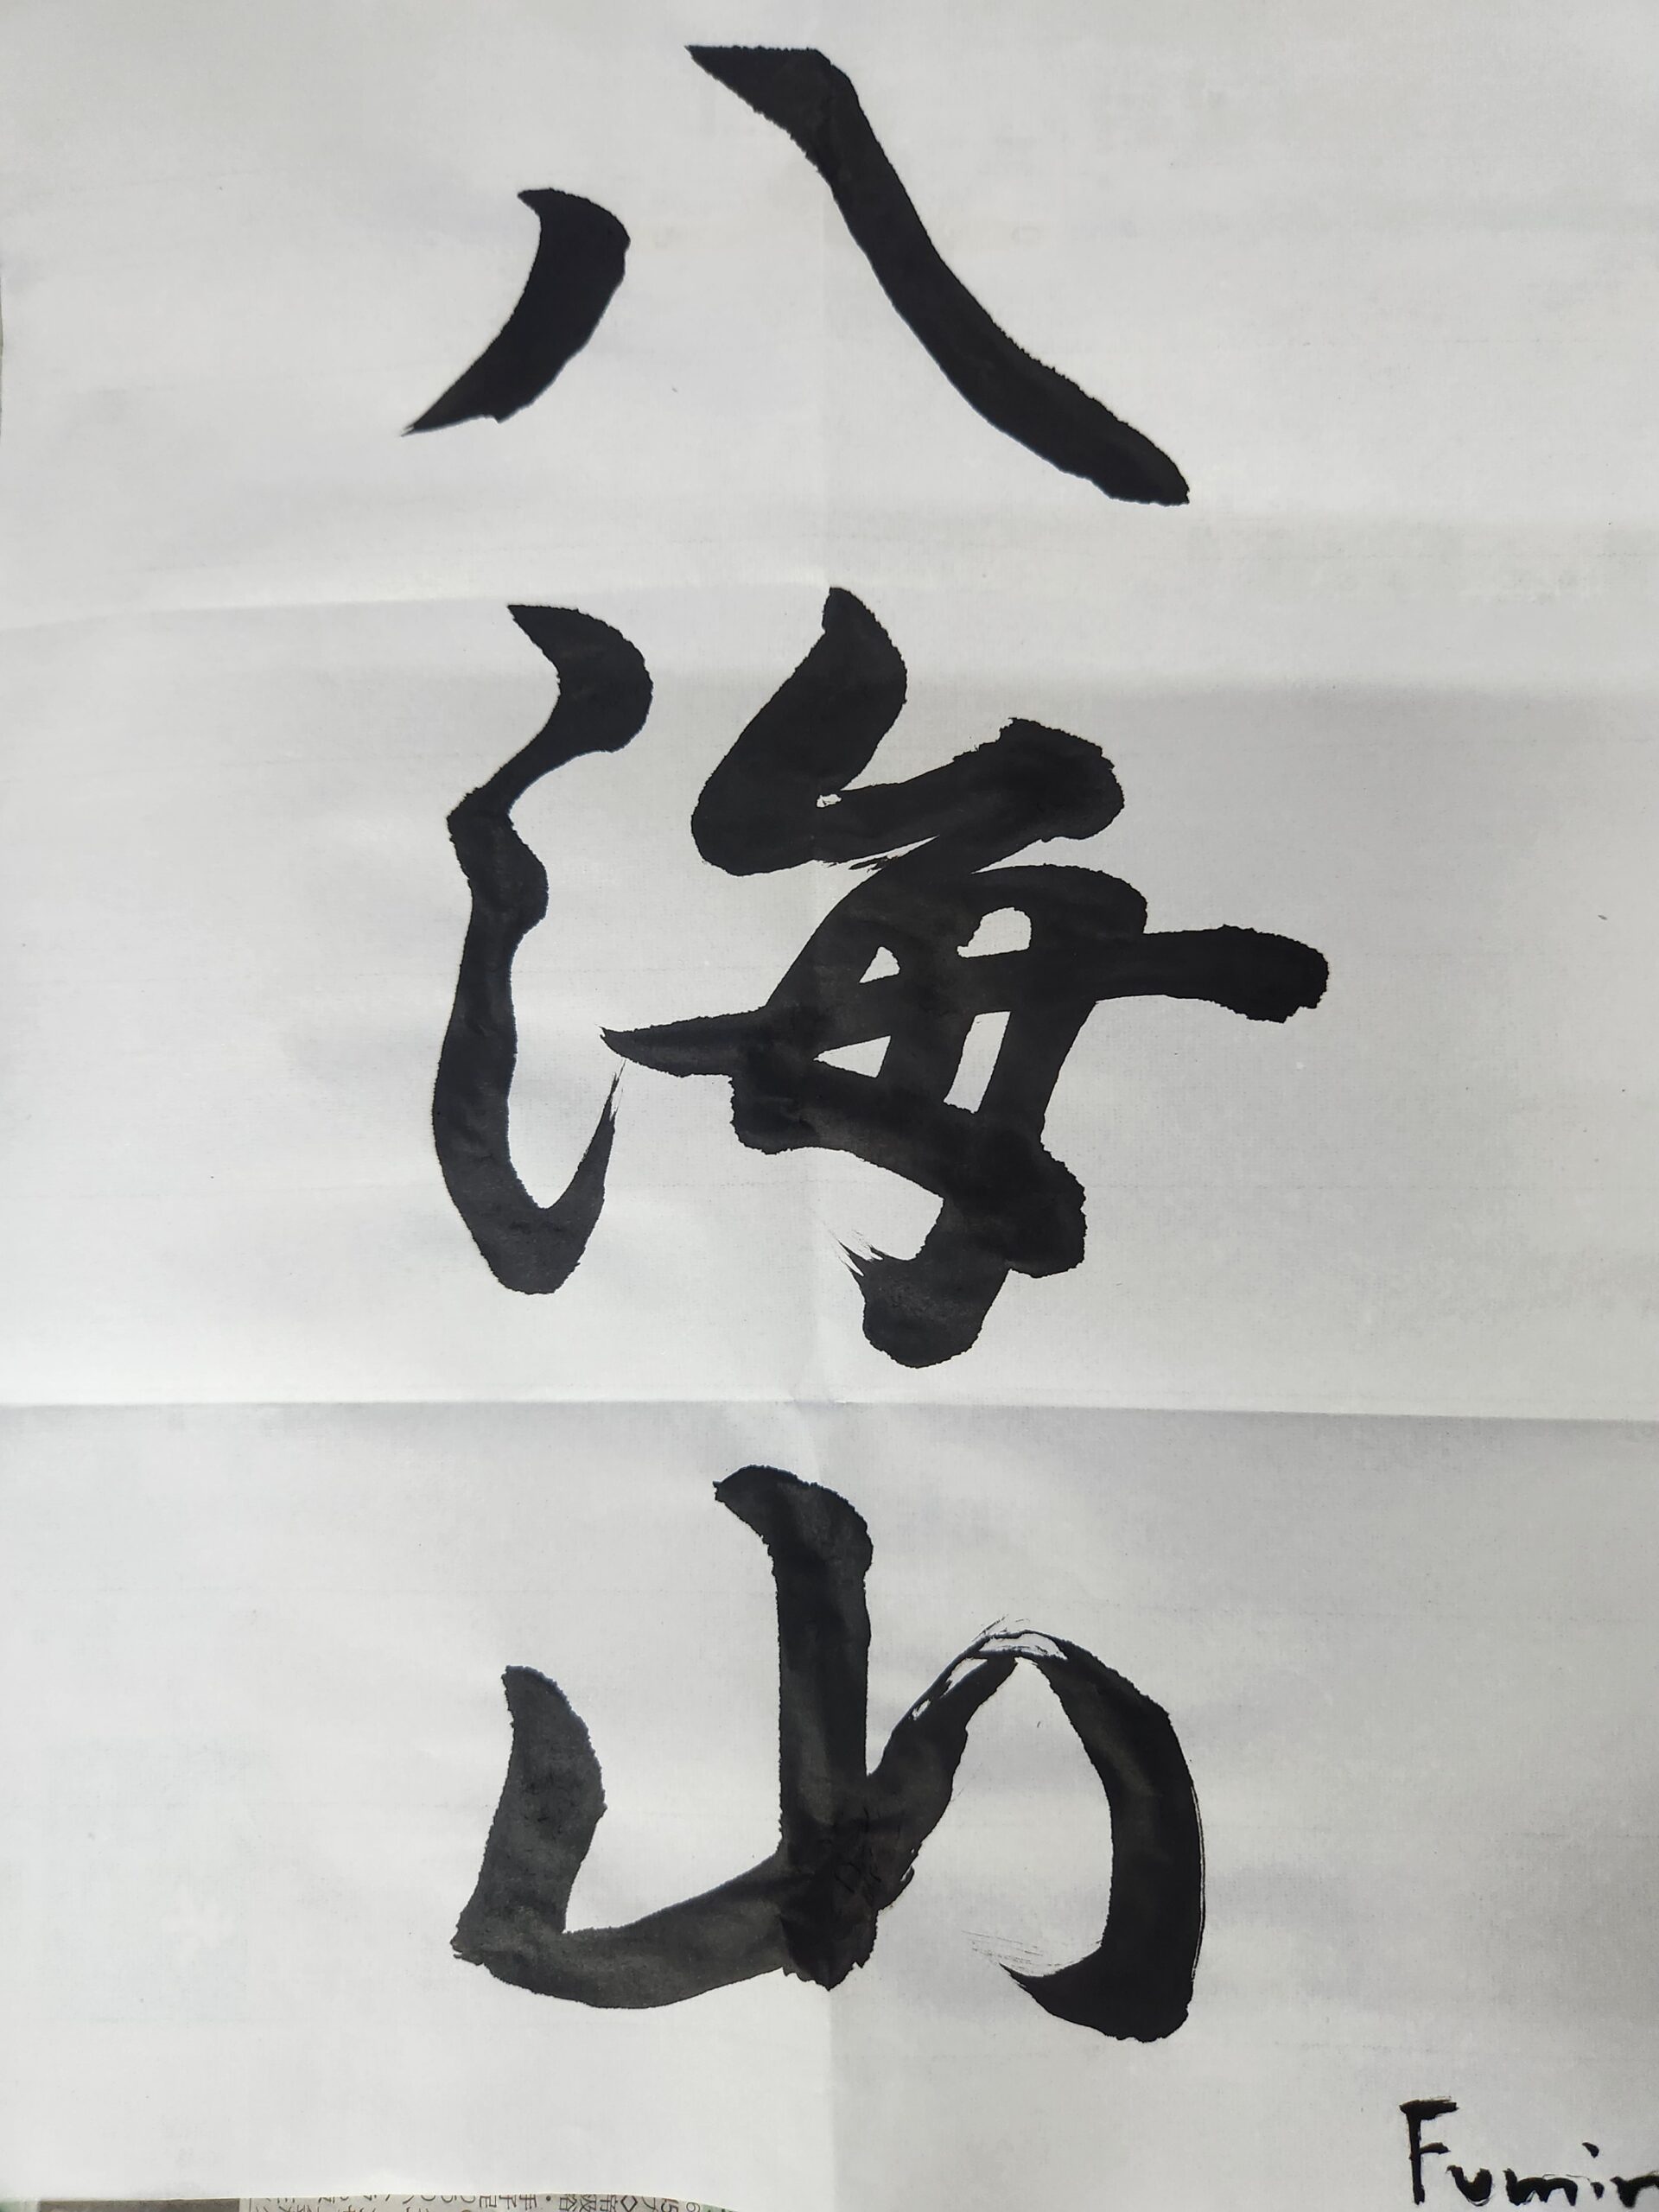 八海山
Fumin